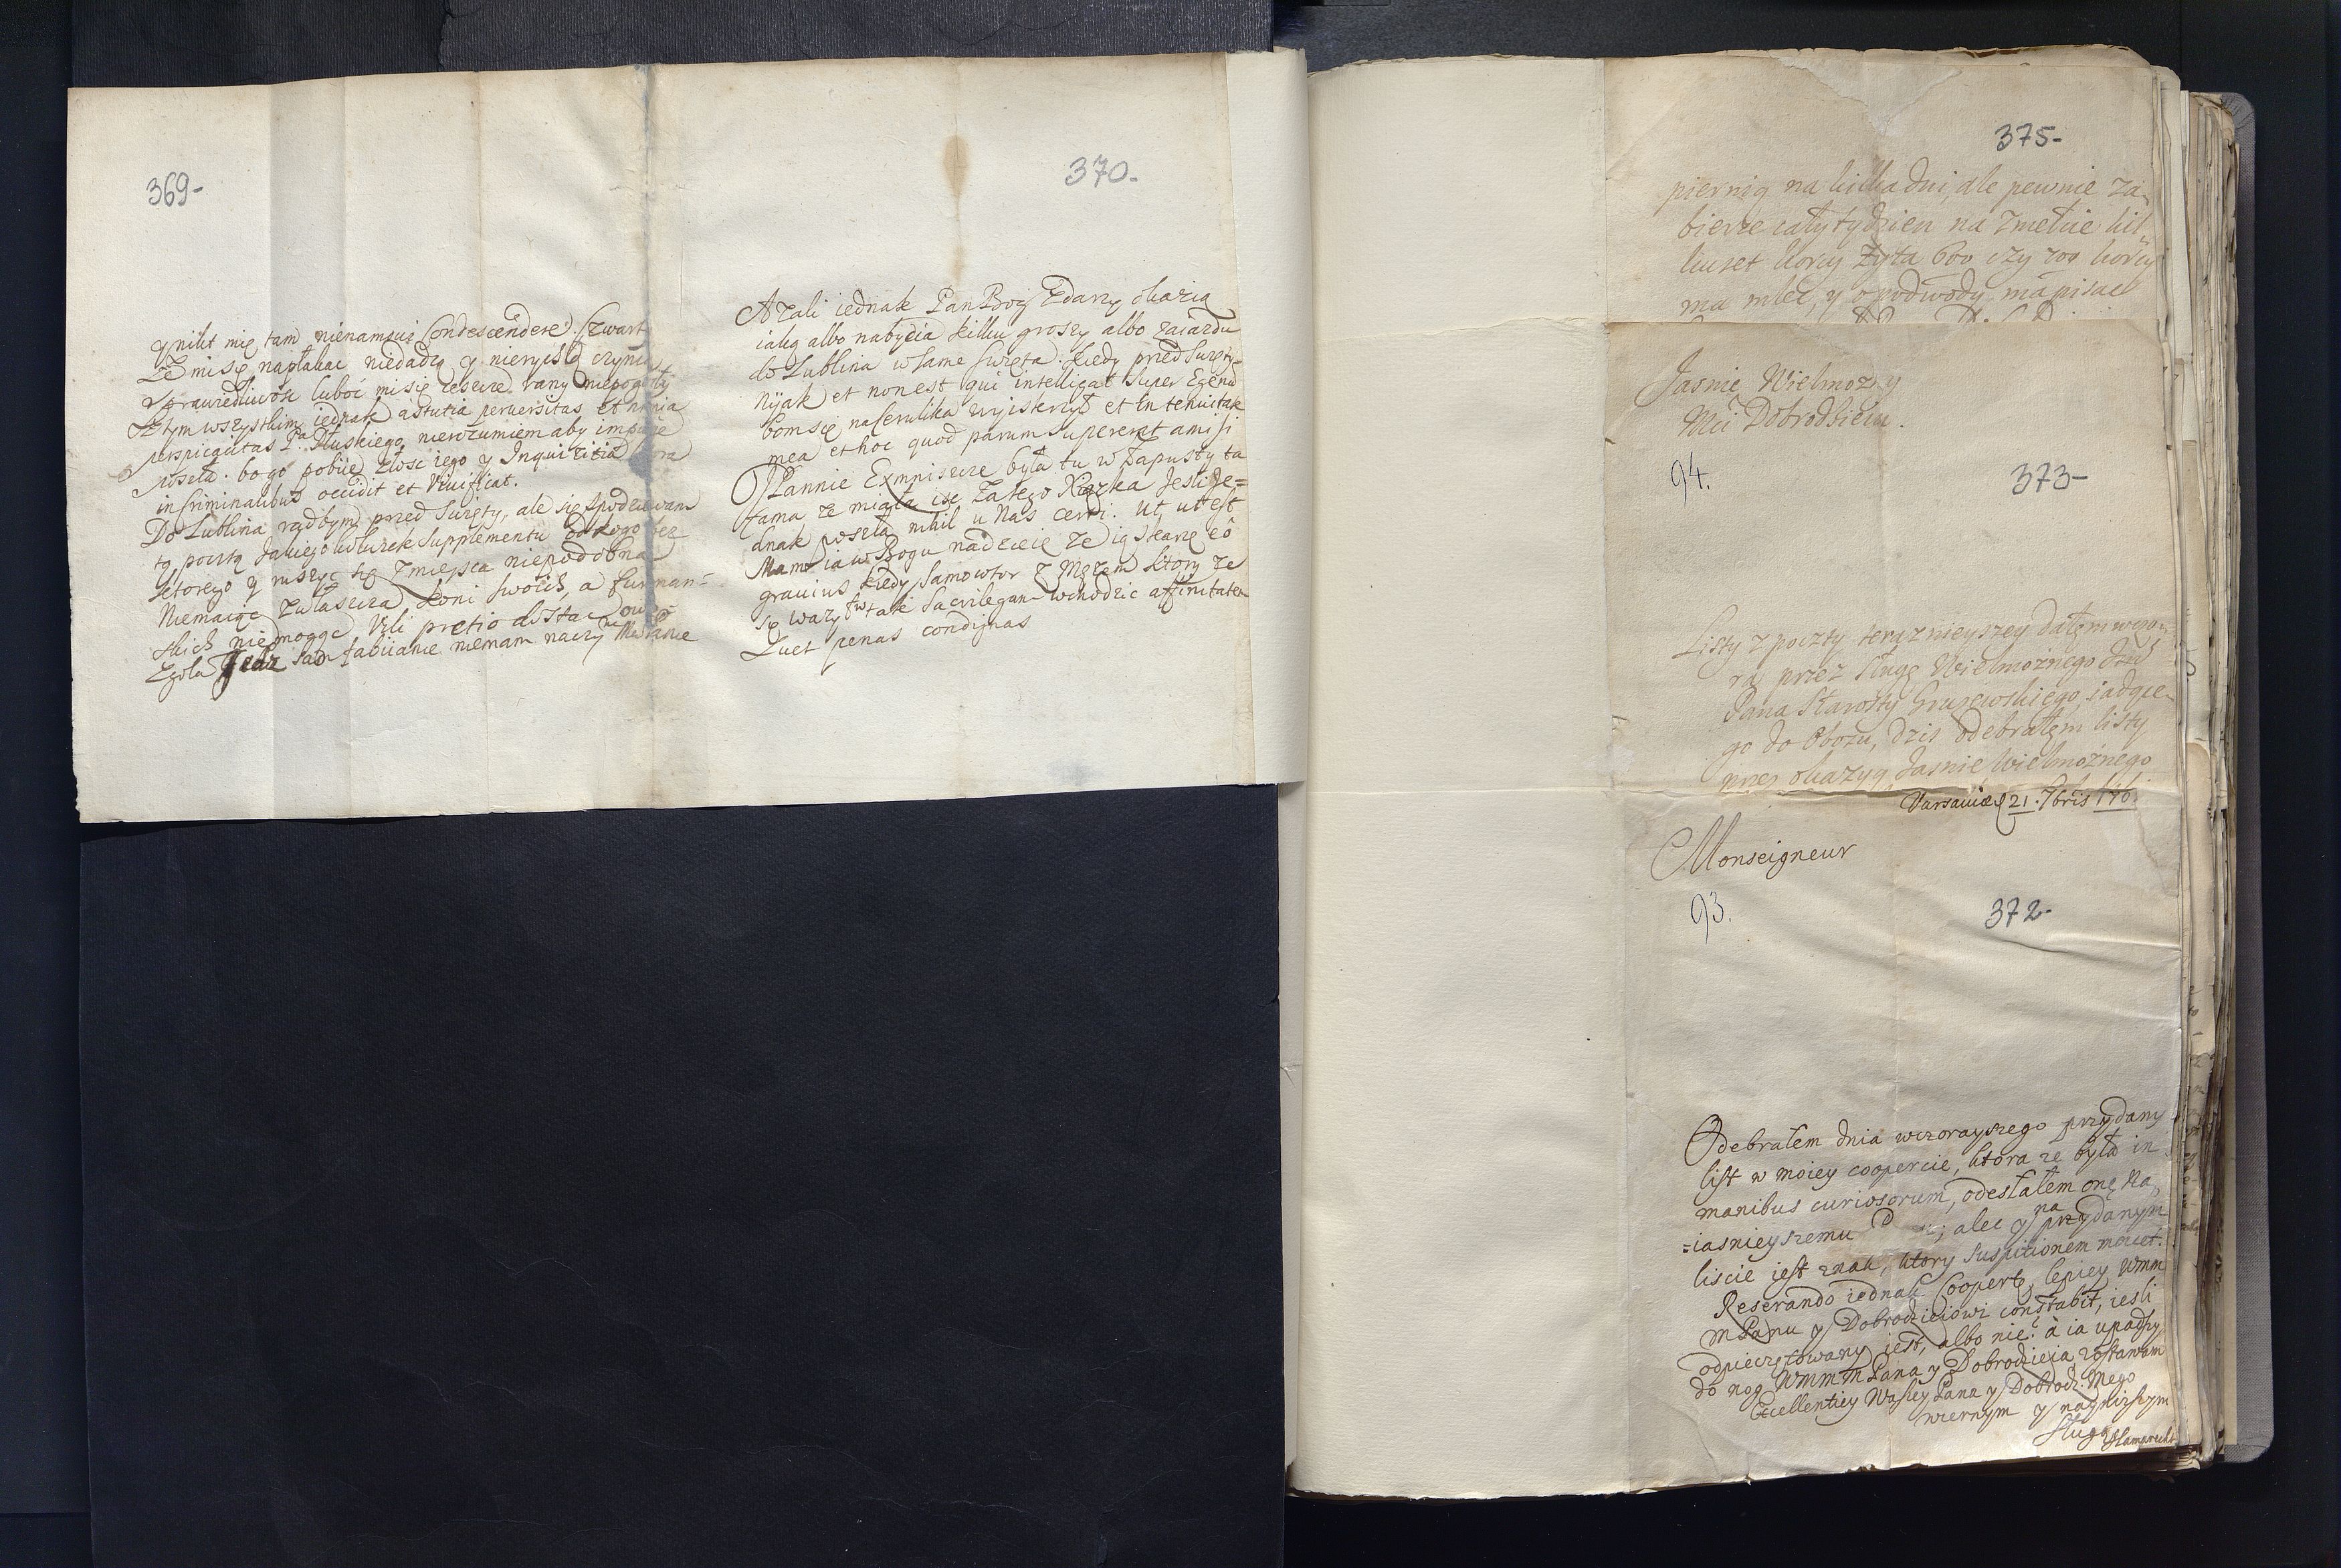 369-
y nikt mię tam nienamowi Condescendere. Czwart
Ze mi się napłakac niedadzą y nierychło czynią
sprawiedliwosc luboć mi się ieszcze rany niepogoiły
Ztym wszystkim iednak astutia perversitas et
perspicacitas Pa Dłuskiego nierozumiem aby impune
poszła. bogo pobiie złosc iego y Inquizitia
in Criminalibus occidit et Vivificat.
Do Lublina radbym przed Swięty, ale się spodziewam
tą pocztą Jakiego Supplementu od kogo bez
ktorego y ruszyc się zmieysca niepodobna
Niemaiąc zwłaszcza koni swoich, a furman=
skich niemogąc Vili pretio dostac
Zgoła Jedz niemam naczy

370-
A zali iednak Pan Bog zdarzy okazią
iaką albo nabycia kilku groszy albo zaiazdu
do Lublina w same swięta. kiedy przed Swięty
nijak et non est qui intelligat super Egenū
bom się na wyiskrzył et in tenuitate
mea et hoc quod parum supererat amisi
O Pannie Exmniszce była tu w Zapusty ta
fama ze miała isc Zatego Xiązka Jesli Je=
dnak poszła nihil u Nas certi. Ut ut est
Mam ia w Bogu nadzieię ze ią skarze eo
gravius kiedy samowtor z Męzem ktory ze
się wazył w tak Sacrilegam wchodzic affinitatem
Luet penas condignas

375-
piernią na kilka dni, ale pewnie za-
bierze cały tydzien na zmełcie kil
kuset korcy Zyta 600 czy 700 korcy
ma mleć, y o podwody ma pisac

Jasnie Wielmozny
Mci Dobrodzieiu.
94.
373-
Listy z poczty teraznieyszey dałem wczo-
ra przez sługę Wielmoznego
Pana Starosty Gruzewskiego iadące-
go do Obozu, dzis odebrałem listy
przez okazyą Jasnie Wielmoznego

Varsaviæ 21. 7bris 170
Monseigneur
93.
372-
Odebrałem dnia wczorayszego przydany
list w moiey coopercie, ktora ze była in
manibus curiosorum, odesłałem onę Na,,
=iasnieyszemu alec y na przydanym
liscie iest znak, ktory suspitionem movet.
Reserando iednak Coopertę lepiey Wmm
m Panu y Dobrodzieiowi constabit, iesli
odpieczętowany iest, albo nie? à ia upadszy
do nog Wmm m Pana y Dobrodzieia zostawam
Excellentiey Waszey Pana y Dobrodz: Mego
wiernym y nayniższym
sługą